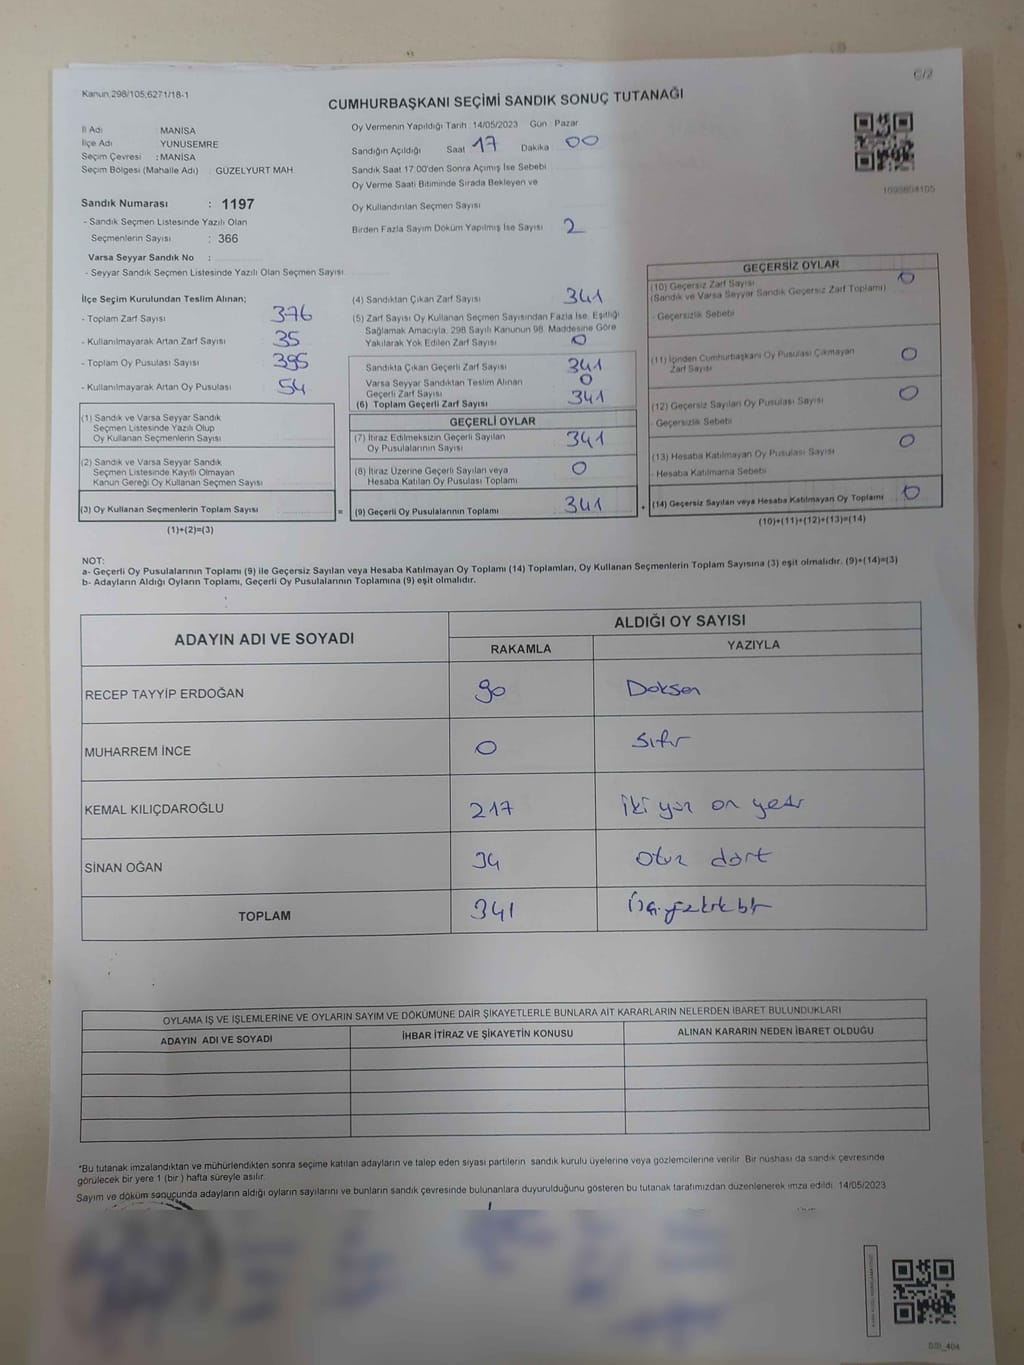 C/2
Kanun.298/105,6271/18-1
CUMHURBAŞKANI SEÇİMİ SANDIK SONUÇ TUTANAĞI
İl Adı : MANİSA
İlçe Adı YUNUSEMRE
Seçim Çevresi : MANİSA
Seçim Bölgesi (Mahalle Adı) : GÜZELYURT MAH
Sandık Numarası : 1197
- Sandık Seçmen Listesinde Yazılı Olan
Seçmenlerin Sayısı : 366
Varsa Seyyar Sandık No :
- Seyyar Sandık Seçmen Listesinde Yazılı Olan Seçmen Sayısı
Oy Vermenin Yapıldığı Tarih : 14/05/2023 Gün : Pazar
Sandığın Açıldığı Saat 17 Dakika 00
Sandık Saat 17.00'den Sonra Açımış İse Sebebi
Oy Verme Saati Bitiminde Sırada Bekleyen ve
Oy Kullandırılan Seçmen Sayısı
Birden Fazla Sayım Döküm Yapılmış İse Sayısı 2
1095804105
İlçe Seçim Kurulundan Teslim Alınan;
- Toplam Zarf Sayısı 376
- Kullanılmayarak Artan Zarf Sayısı 35
- Toplam Oy Pusulası Sayısı 395
- Kullanılmayarak Artan Oy Pusulası 54
(1) Sandık ve Varsa Seyyar Sandık
Seçmen Listesinde Yazılı Olup
Oy Kullanan Seçmenlerin Sayısı
(2) Sandık ve Varsa Seyyar Sandık
Seçmen Listesinde Kayıtlı Olmayan
Kanun Gereği Oy Kullanan Seçmen Sayısı
(3) Oy Kullanan Seçmenlerin Toplam Sayısı =
(1)+(2)=(3)
(4) Sandıktan Çıkan Zarf Sayısı 341
(5) Zarf Sayısı Oy Kullanan Seçmen Sayısından Fazla İse, Eşitliği
Sağlamak Amacıyla, 298 Sayılı Kanunun 98. Maddesine Göre
Yakılarak Yok Edilen Zarf Sayısı 0
Sandıkta Çıkan Geçerli Zarf Sayısı 341
Varsa Seyyar Sandıktan Teslim Alınan
Geçerli Zarf Sayısı 0
(6) Toplam Geçerli Zarf Sayısı 341
GEÇERLİ OYLAR
(7) İtiraz Edilmeksizin Geçerli Sayılan
Oy Pusulalarının Sayısı 341
(8) İtiraz Üzerine Geçerli Sayılan veya
Hesaba Katılan Oy Pusulası Toplamı 0
(9) Geçerli Oy Pusulalarının Toplamı 341 +
GEÇERSİZ OYLAR
(10) Geçersiz Zarf Sayısı 0
(Sandık ve Varsa Seyyar Sandık Geçersiz Zarf Toplamı)
- Geçersizlik Sebebi
(11) İçinden Cumhurbaşkanı Oy Pusulası Çıkmayan
Zarf Sayısı 0
(12) Geçersiz Sayılan Oy Pusulası Sayısı 0
- Geçersizlik Sebebi
(13) Hesaba Katılmayan Oy Pusulası Sayısı 0
- Hesaba Katılmama Sebebi
(14) Geçersiz Sayılan veya Hesaba Katılmayan Oy Toplamı 0
(10)+(11)+(12)+(13)=(14)
NOT:
a- Geçerli Oy Pusulalarının Toplamı (9) ile Geçersiz Sayılan veya Hesaba Katılmayan Oy Toplamı (14) Toplamları, Oy Kullanan Seçmenlerin Toplam Sayısına (3) eşit olmalıdır. (9)+(14)=(3)
b- Adayların Aldığı Oyların Toplamı, Geçerli Oy Pusulalarının Toplamına (9) eşit olmalıdır.
ADAYIN ADI VE SOYADI
ALDIĞI OY SAYISI
RAKAMLA YAZIYLA
RECEP TAYYİP ERDOĞAN 90 Doksan
MUHARREM İNCE 0 Sıfır
KEMAL KILIÇDAROĞLU 217 iki yüz on yedi
SİNAN OĞAN 34 Otuz dört
TOPLAM 341
OYLAMA İŞ VE İŞLEMLERİNE VE OYLARIN SAYIM VE DÖKÜMÜNE DAİR ŞİKAYETLERLE BUNLARA AİT KARARLARIN NELERDEN İBARET BULUNDUKLARI
ADAYIN ADI VE SOYADI İHBAR İTİRAZ VE ŞİKAYETİN KONUSU ALINAN KARARIN NEDEN İBARET OLDUĞU
*Bu tutanak imzalandıktan ve mühürlendikten sonra seçime katılan adayların ve talep eden siyasi partilerin sandık kurulu üyelerine veya gözlemcilerine verilir. Bir nüshası da sandık çevresinde
görülecek bir yere 1 (bir ) hafta süreyle asılır.
Sayım ve döküm sonucunda adayların aldığı oyların sayılarını ve bunların sandık çevresinde bulunanlara duyurulduğunu gösteren bu tutanak tarafımızdan düzenlenerek imza edildi. 14/05/2023